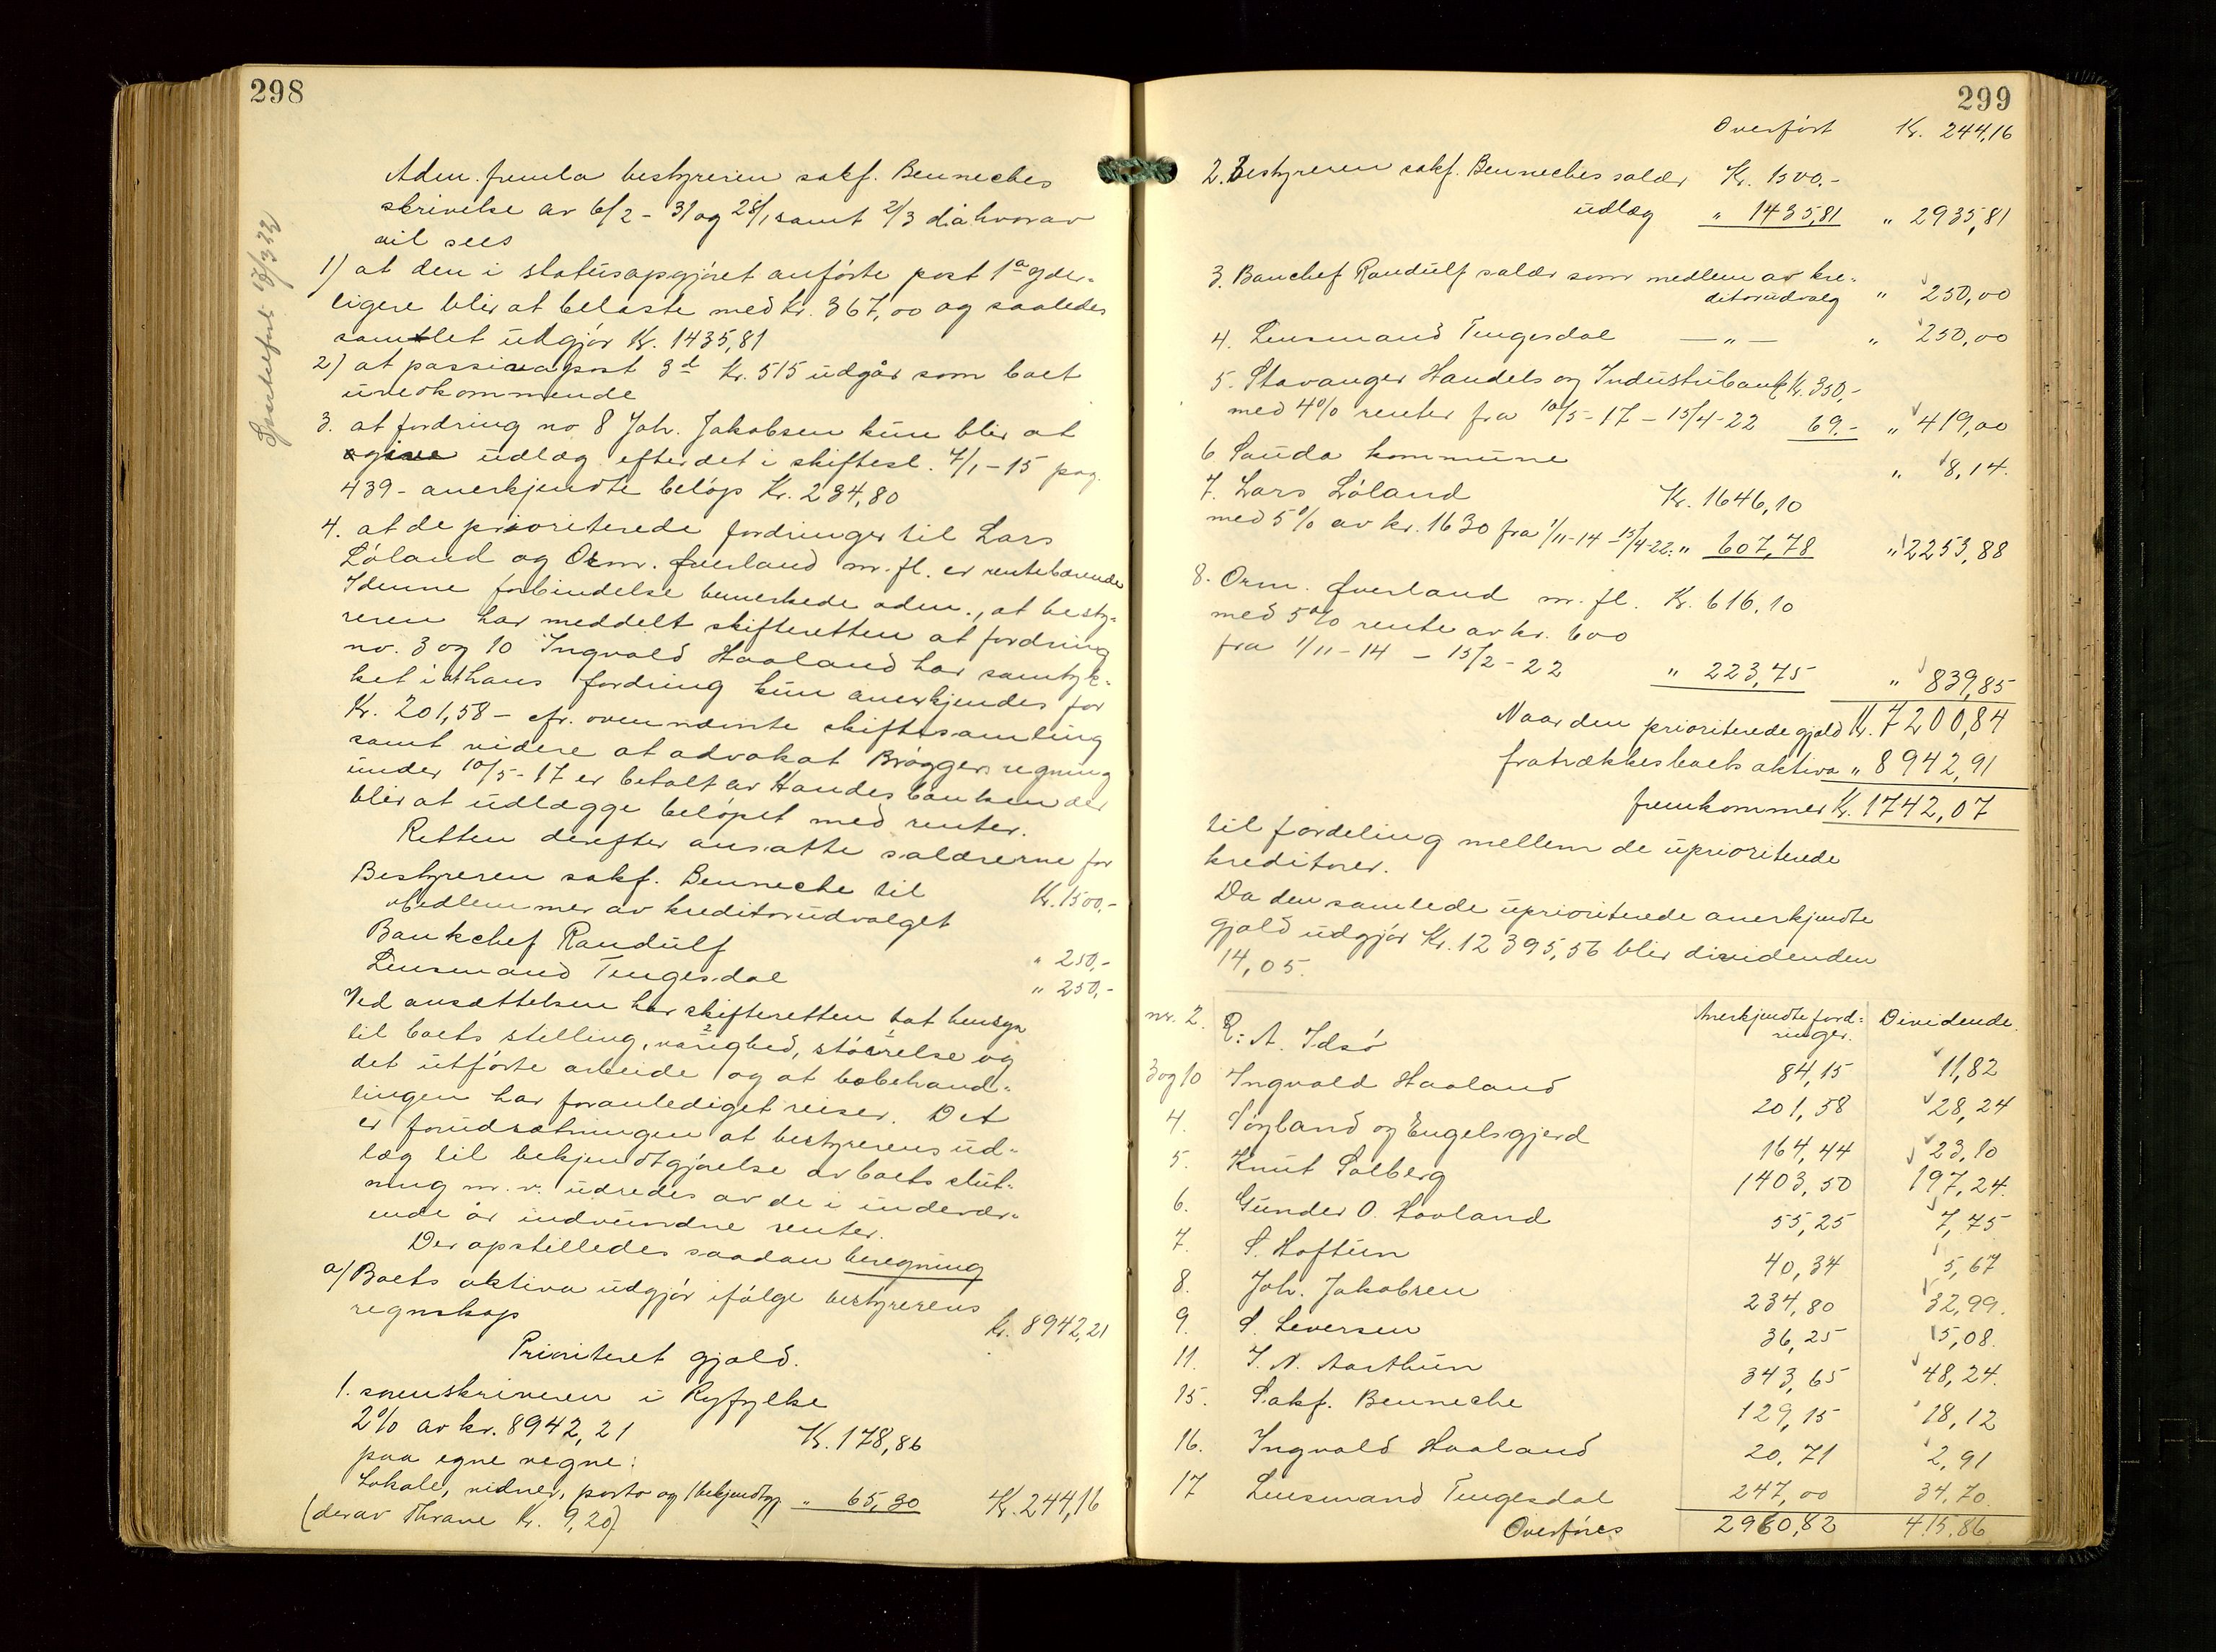 298
Adm. fremla bestyreren sakf. Benneches
skrivelse av 6/2 - 31 og 28/1 samt 2/3 d.å hvorav
vil sees
1) at den i statusopgjøret anførte post 1a yder-
ligere blir at belaste med Kr. 367,00 og saaledes
samlet utgjør Kr. 1435,81
2) at passiva post 3d Kr. 515 udgår som boet
uvedkommende
3. at fordring no 8 Joh. Jakobsen kun blir at
give udlæg efter det i skiftesl. 7/1-15 pag.
439 - anerkjendte beløp Kr. 234,80
4. at de prioriterede fordringer til Lars
Løland og Orm. Øverland m. fl. er rentebærende
I denne forbindelse bemerkede adm., at besty-
reren har meddelt skifteretten at fordring
no. 3 og 10 Ingvald Haaland har samtyk-
ket i at hans fordring kun anerkjendes for
Kr. 201,58 - cfr. ovennævnte skiftesamling
samt videre at advokat Brøggers regning
under 10/5-17 er betalt av Handesbanken der
blir at udlægge beløpet med renter.
Retten derefter ansatte salærerne for
Bestyreren sakf. Benneche til Kr. 1500,-
Medlemmer av kreditorudvalget
Bankchef Randulf " 250,-
Lensmand Tengesdal " 250,-
Ved ansættelsen har skifteretten tat hensyn
til boets stilling, varighed, størrelse og
det utførte arbeide og at bobehand-
lingen har foranlediget reiser. Det
er forudsætningen at bestyrerens ud-
læg til bekjendtgjørelse av boets slut-
ning m. v. udredes av de i indevær-
ende år indvundne renter.
Der opstilledes saadan beregning
a) Boets aktiva udgjør ifølge bestyrerens
regnskap Kr. 8942,21
Prioritert gjæld.
1. sorenskriveren i Ryfylke
2% av kr. 8942,21 Kr. 178,86
paa egne vegne:
Lokale, vidner, porto og bekjendtg. " 65,30 Kr. 244,16
(derav Thrane Kr. 9,20)
299
Overført Kr. 244,16
2. Bestyreren sakf. Benneches salær Kr. 1500.-
udlæg " 1435,81 " 2935,81
3. Banchef Randulf salær som medlem av kre-
ditorudvalg " 250,00
4. Lensmand Tengesdal — " — " 250,00
5. Stavanger Handels og Industribank Kr. 350,-
med 4% renter fra 10/5-17 - 15/4-22 69.- " 419,00
6 Sauda kommune " 8,14.
7. Lars Løland Kr. 1646,10
med 5% av kr. 1630 fra 1/11-14 - 15/4-22. " 607,78 " 2253,88
8. Orm. Øverland m. fl. Kr. 616,10
med 5% rente av kr. 600
fra 1/11-14 - 15/2-22 " 223,45 " 839,85
Naar den prioriterede gjæld Kr. 7200,84
fratrækkes boets aktiva " 8942,91
fremkommer Kr. 1742,07
til fordeling mellem de uprioriterede
kreditorer.
Da den samlede uprioriterede anerkjendte
gjæld udgjør Kr. 12395,56 blir dividenden
14,05.
Anerkjendte ford- Dividende.
ringer.
nr. 2. R. A. Idsø 84,15 11,82
3 og 10 Ingvald Haaland 201,58 28,24
4. Søyland og Engelsgjerd 164,44 23,10
5. Knut Solberg 1403,50 197,24.
6. Gunder O. Hovland 55,25 7,75
7. S. Hoftun 40,34 5,67
8. Joh. Jakobsen 234,80 32,99.
9. S. Seversen 36,25 5,08.
11. I. N. Aarthun 343,65 48,24.
15. Sakf. Benneche 129,15 18,12
16. Ingvald Haaland 20,71 2,91
17 Lensmand Tengesdal 247,00 34,70.
Overføres 2960,82 415,86